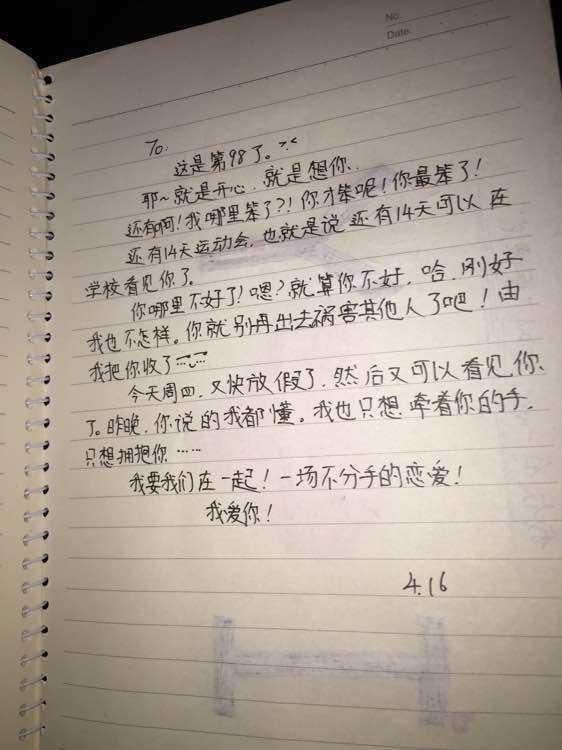 No.
Date.
To.
这是第98了。>.<
耶~就是开心，就是想你..
还有啊！我哪里笨了?！你才笨呢！你最笨了！
还有14天运动会，也就是说还有14天可以在
学校看见你了。
你哪里不好了！嗯？就算你不好，哈，刚好
我也不怎样。你就别再出去祸害其他人了吧！由
我把你收了
今天周四，又快放假了，然后又可以看见你
了。昨晚，你说的我都懂。我也只想牵着你的手，
只想拥抱你……
我要我们在一起！一场不分手的恋爱！
我爱你！
4.16